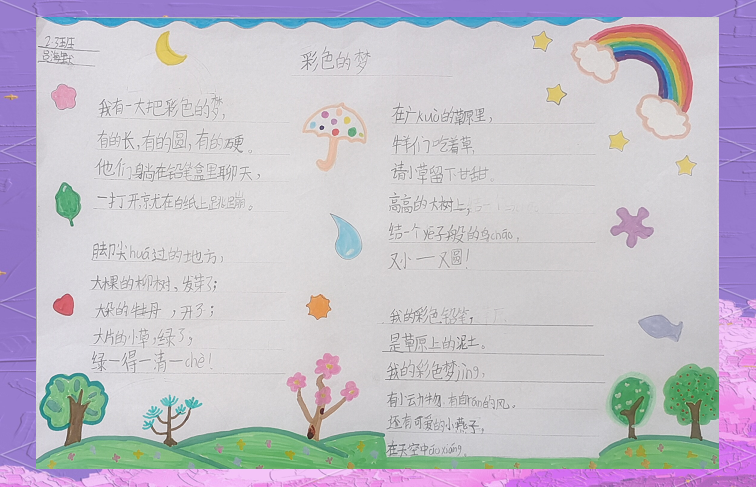 2.3班
彩色的梦
我有一大把彩色的梦,
有的长,有的圆,有的硬。
他们躺在铅笔盒里聊天,
一打开,就在白纸上跳蹦。
脚尖huá过的地方,
大棵的柳树,发芽了;
大朵的牡丹,开了;
大片的小草,绿了,
绿得清chè!
在广kuò的草原里,
羊们吃着草,
请小草留下甘甜。
高高的大树上,
结一个 子般的鸟cháo,
又小一又圆!
我的彩色铅笔,
是草原上的泥土。
我的彩色梦jìng,
有小动物,有自 的风,
还有可爱的小燕子,
在天空中áo xiáng。